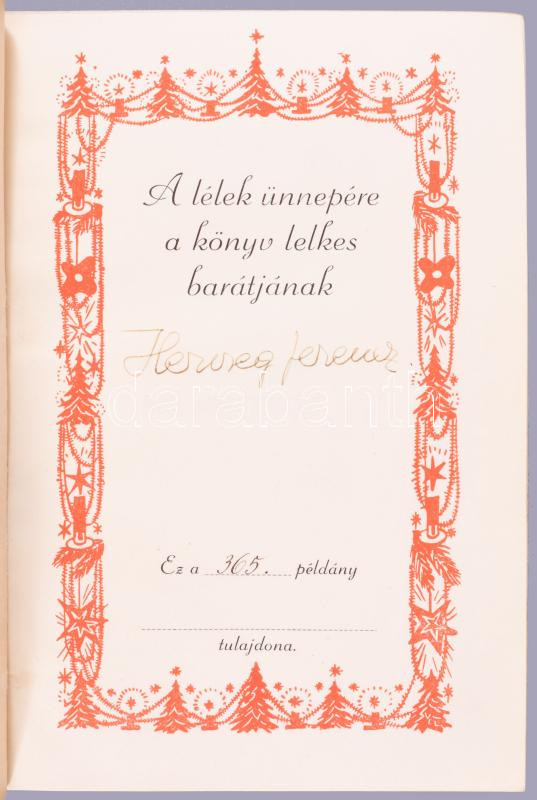 A lélek ünnepére
a könyv lelkes
barátjának
Herczeg Ferenc
darabanth
Ez a 365. példány
tulajdona.